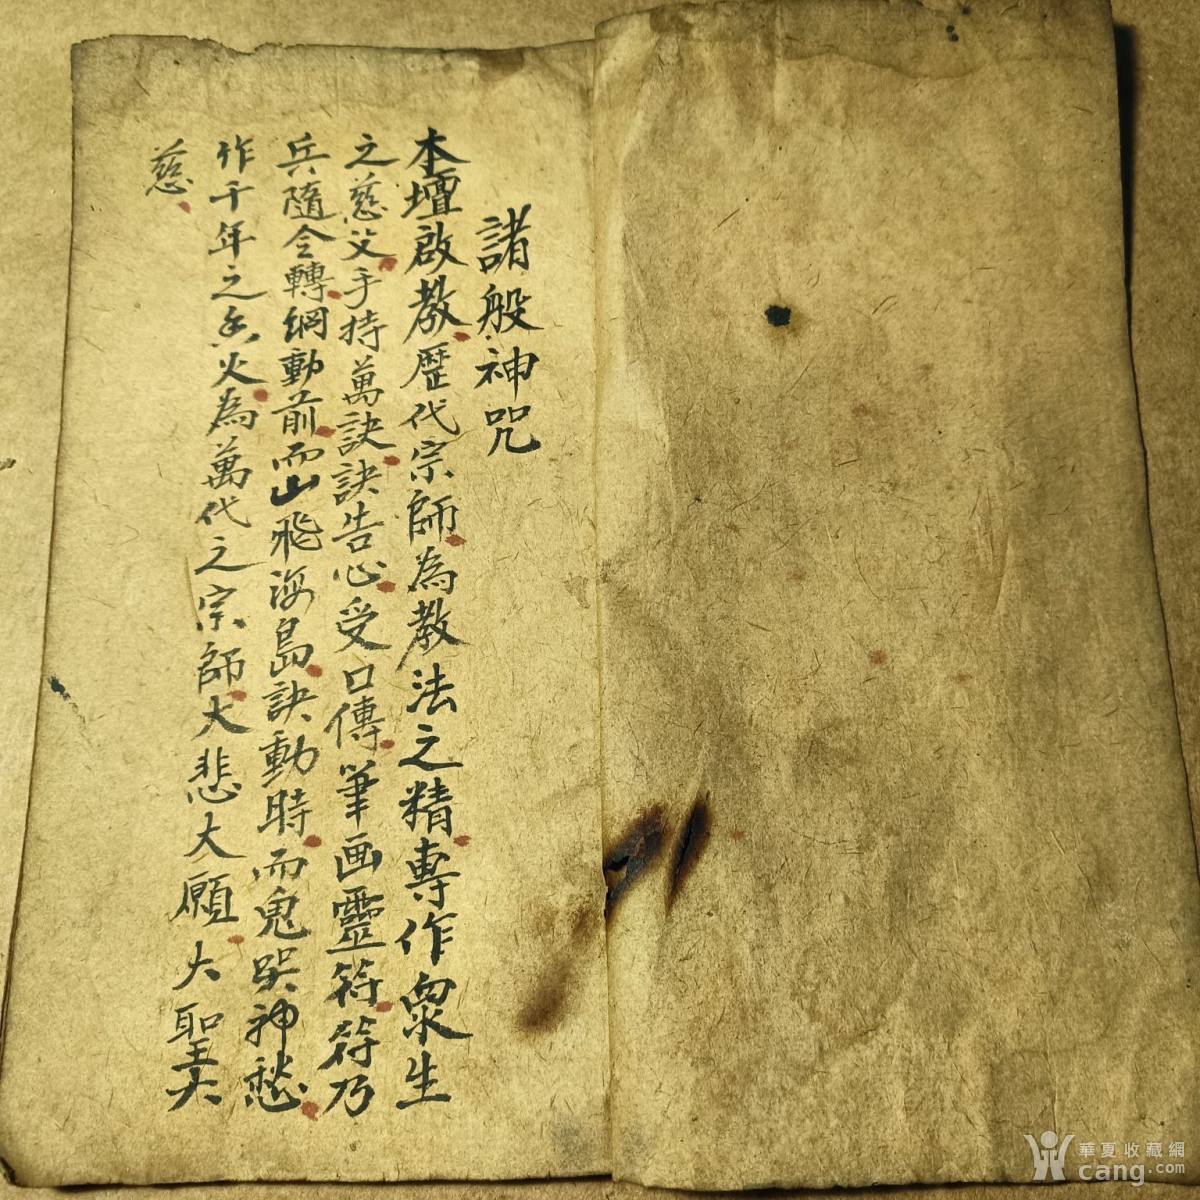 諸般神咒
本壇啟教歷代宗師為教法之精專作衆生
之慈父手持萬訣訣告心受口傳筆画靈符符乃
兵隨令轉綱動前而山飛海島訣動時而鬼哭神愁
作千年之香火為萬代之宗師大悲大願大聖大
慈
華夏收藏網
cang.com